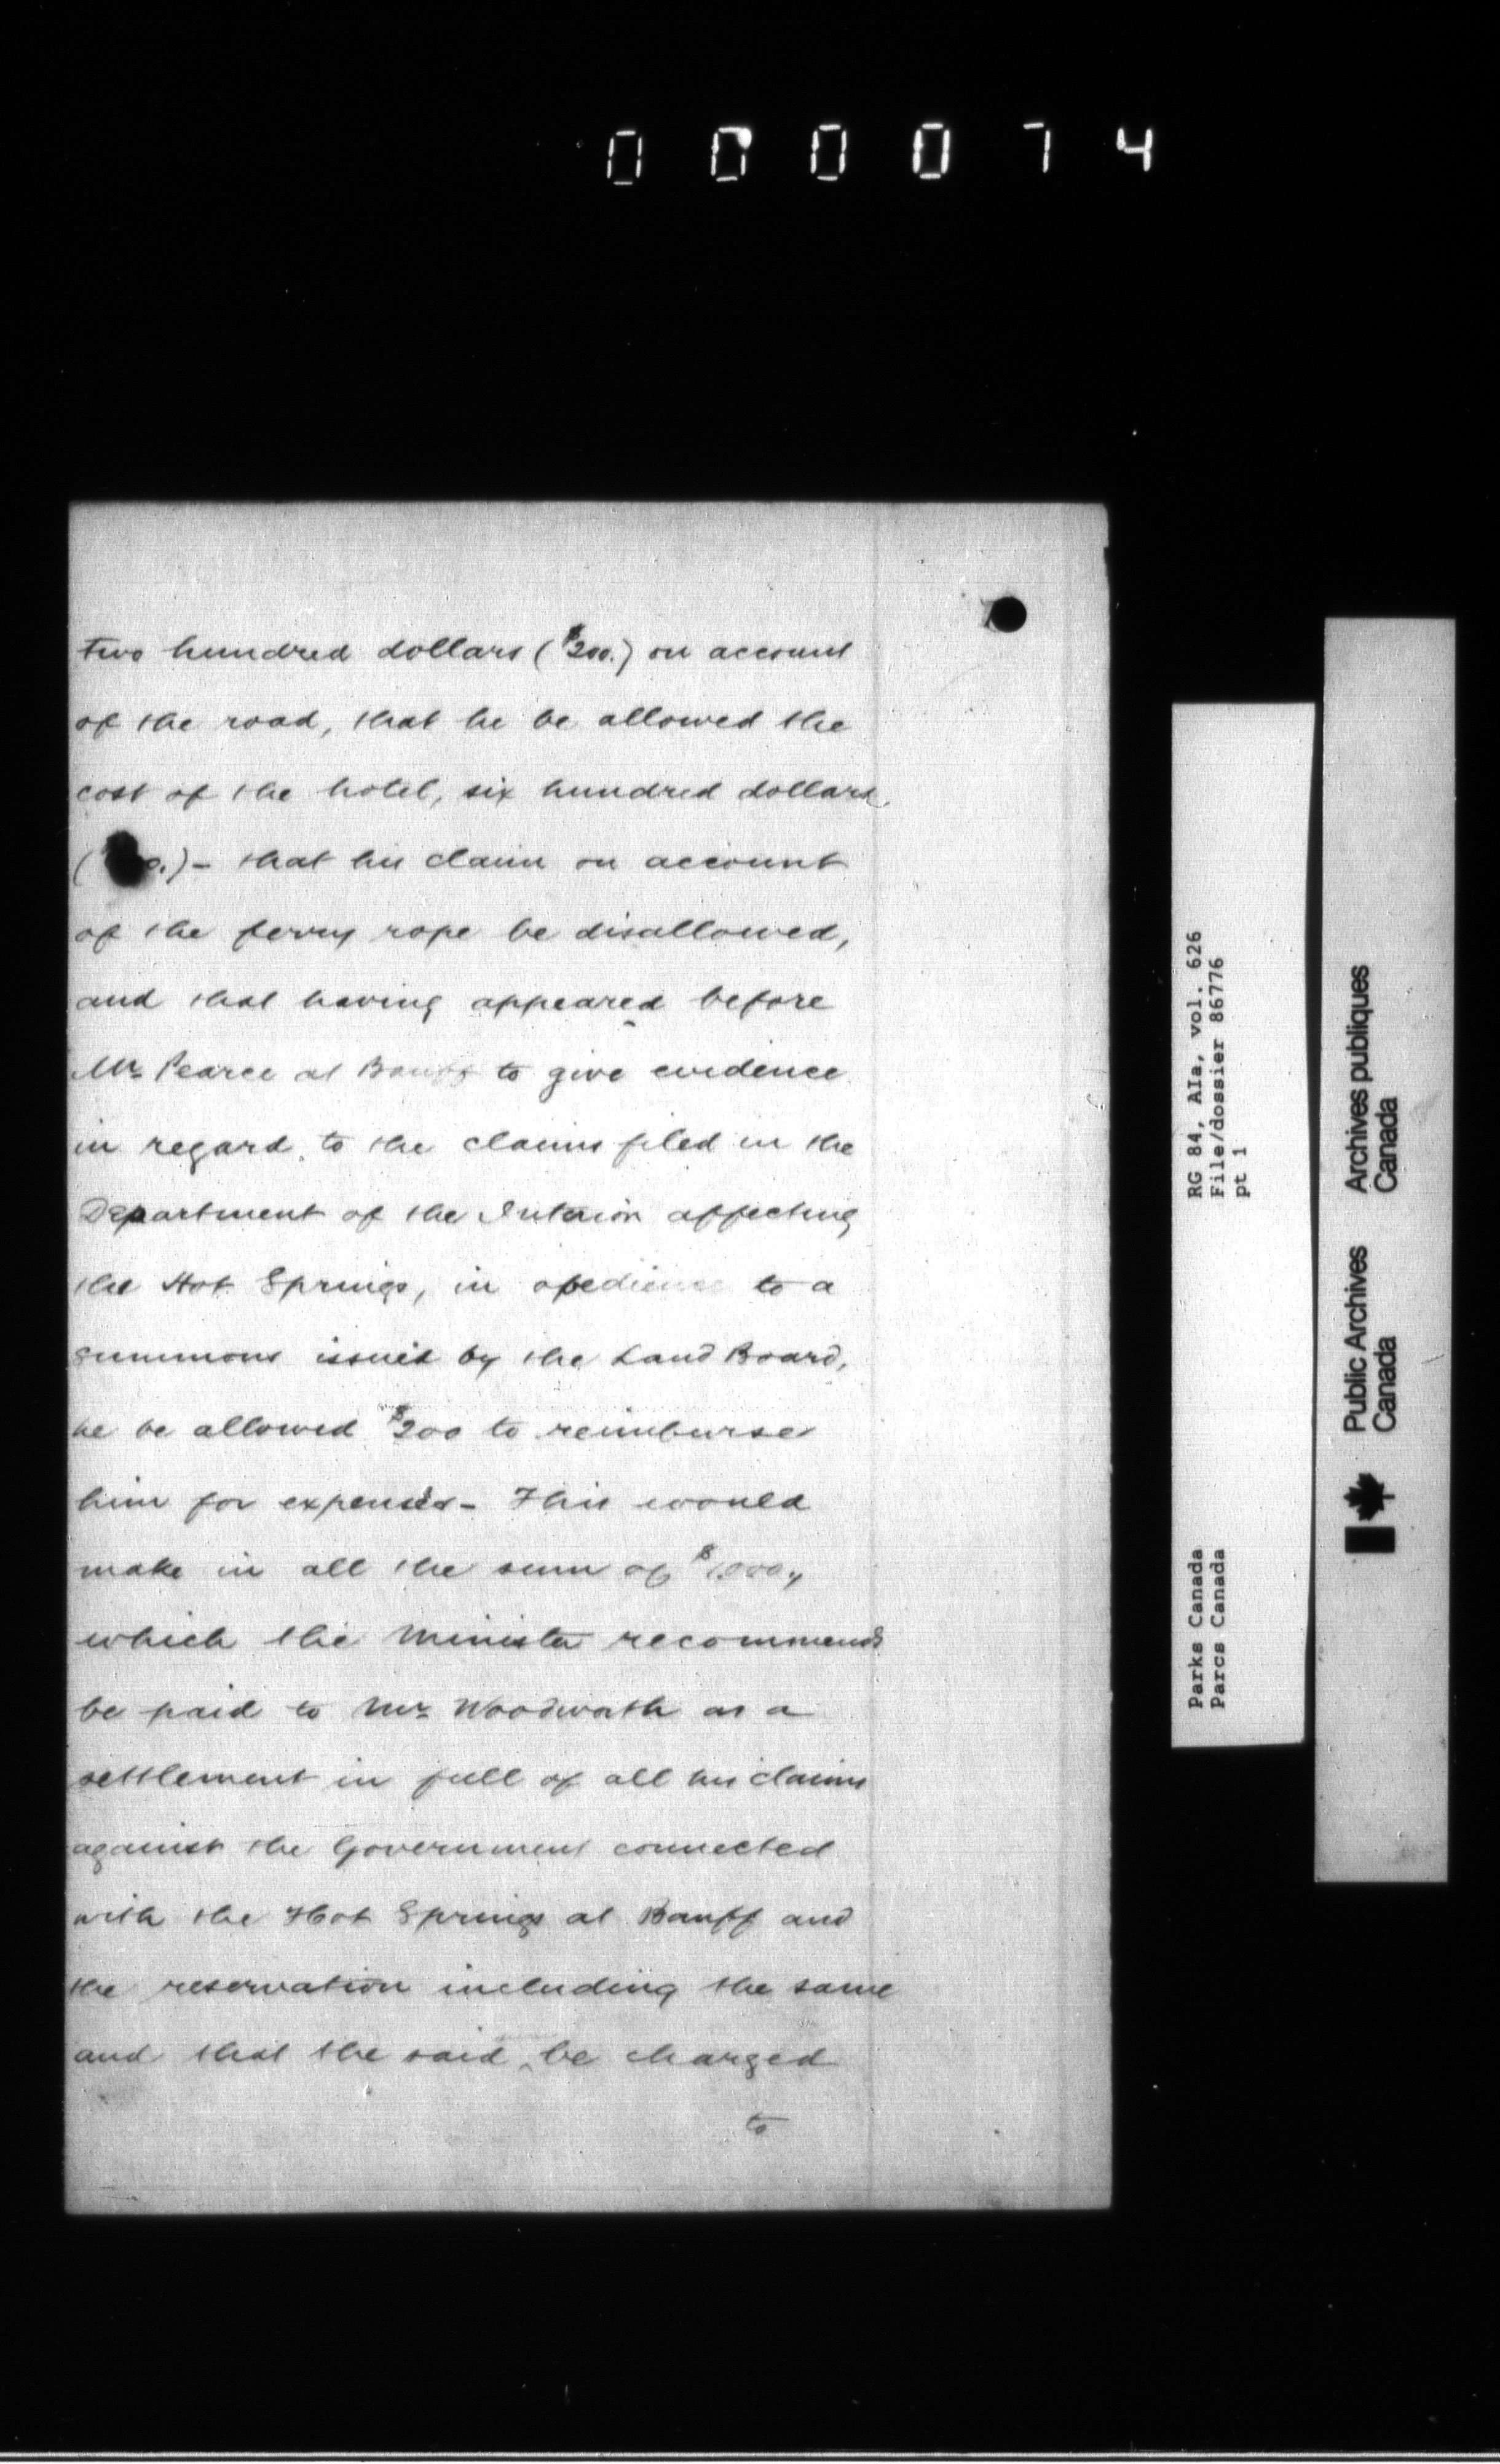 000074
two hundred dollars ($200.) on account
of the road, that he be allowed the
cost of the hotel, six hundred dollars
( 0.) - that his claim on account
of the ferry rope be disallowed,
and that having appeared before
Mr. Pearce at Banff to give evidence
in regard to the claims filed in the
Department of the Interior affecting
the Hot Springs, in obedience to a
summons issued by the Land Board,
he be allowed $200 to reimburse
him for expenses - This would
make in all the sum of $1,000,
which the Minister recommends
be paid to Mr. Woodworth as a
settlement in full of all his claims
against the Government connected
with the Hot Springs at Banff and
the reservation including the same
and that the said be charged
to
RG 84, AIa, vol. 626
File/dossier 86776
pt 1
Parks Canada
Parcs Canada
Public Archives
Canada
Archives publiques
Canada